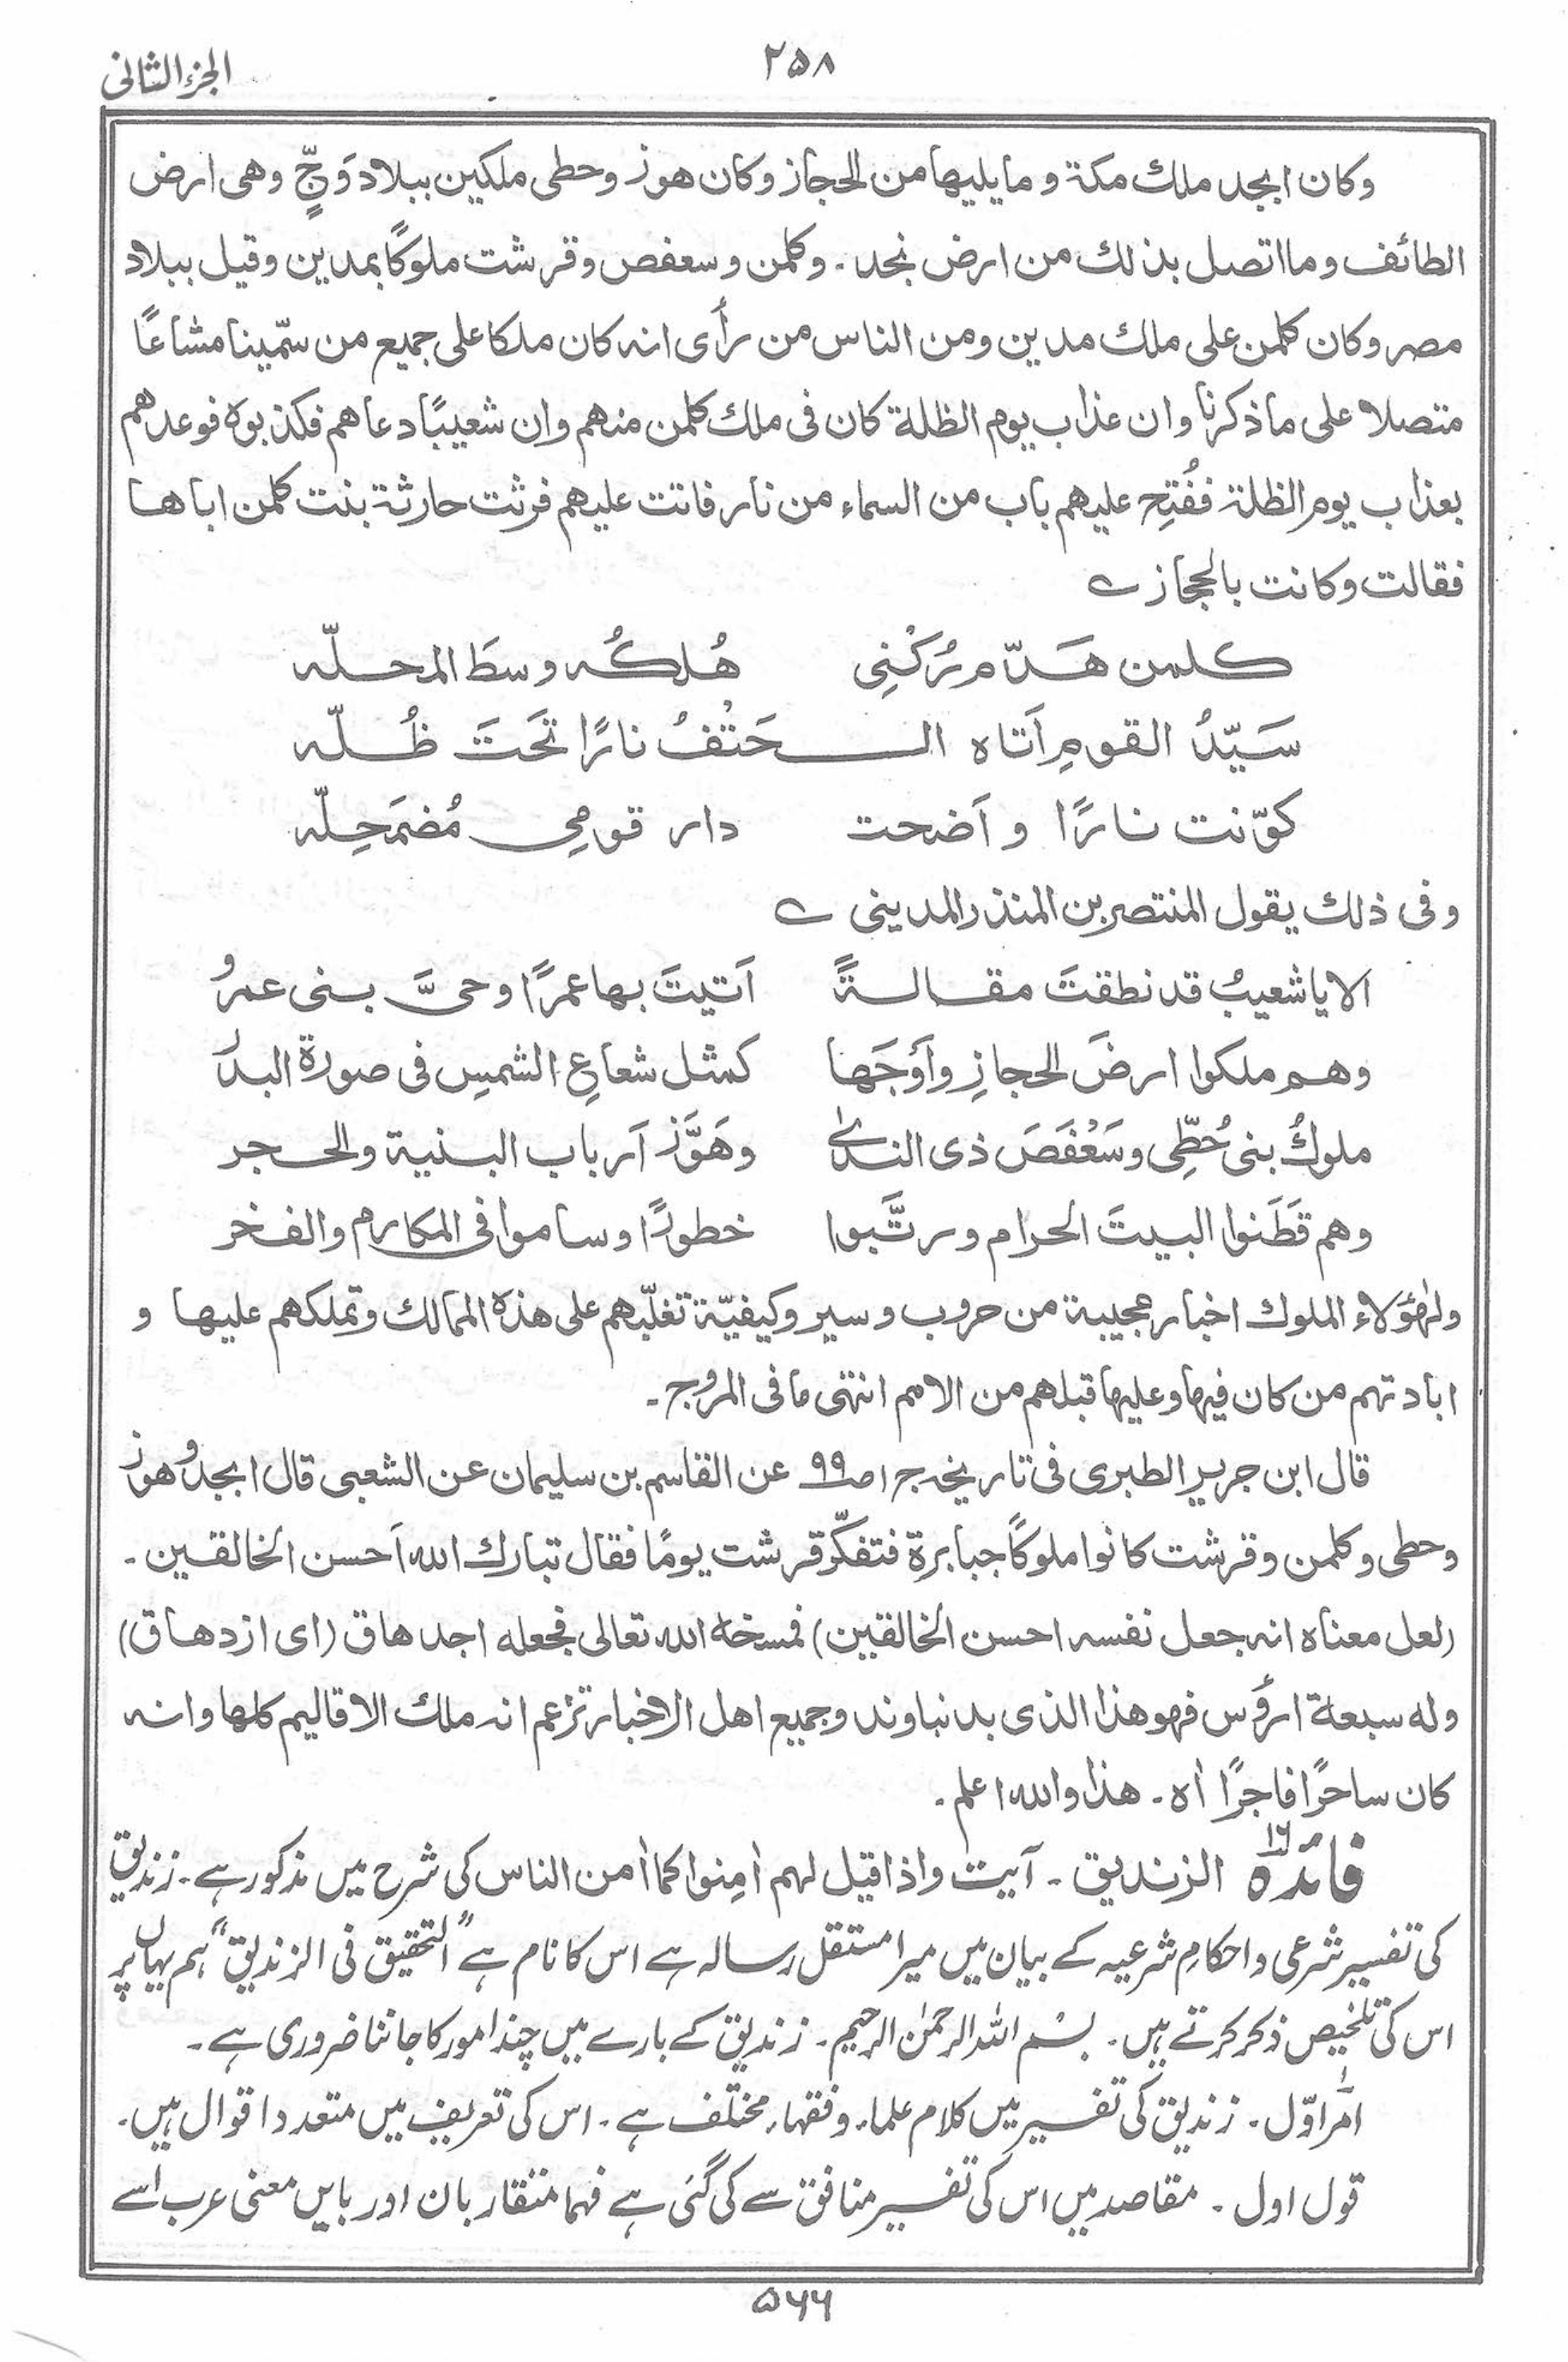 الجزء الثانی
۲۵۸
وكان ابجد ملك مكة و ما يليها من الحجاز وكان هوز وحطی ملكين ببلاد وَجٍّ وهی ارض
الطائف وما اتصل بذلك من ارض نجد ۔ وكلمن وسعفص وقرشت ملوكًا بمدين وقيل ببلاد
مصر وكان كلمن علی ملك مدين ومن الناس من رأی انه كان ملكا علی جميع من سمّينا مشاعًا
متصلا علی ما ذكرنا وان عذاب يوم الظلة كان فی ملك كلمن منهم وان شعيبًا دعاهم فكذبوه فوعدهم
بعذاب يوم الظلة ففُتِح عليهم باب من السماء من نار فاتت عليهم فرثت حارثة بنت كلمن اباها
فقالت وكانت بالحجاز ؎
كلمن هَدّم رُكْنِی هُلكُه وسطَ المحلّه
سَيّدُ القومِ اَتاه الحَتْفُ نارًا تَحَتَ ظُلّه
كوّنت نارًا و اَضحت دار قومِی مُضمَحِلّه
وفی ذلك يقول المنتصر بن المنذر المدينی ؎
الا يا شعيبُ قد نطقتَ مقالةً اَتيتَ بها عمرًا وحیَّ بنی عمرٍو
وهم ملكوا ارضَ الحجازِ وأَوَجَها كمثل شعاعِ الشمسِ فی صورة البدرٖ
ملوكُ بنی حُطِّی وسَعْفَصَ ذی الندٰی وهَوَّز اَرباب البنية والحجر
وهم قَطَنوا البيتَ الحرام ورتَّبوا خطورًا وساموا فی المكارم والفخر
ولهٰؤلاء الملوك اخبار عجيبة من حروب وسير وكيفيّة تغلّبهم علی هذه الممالك وتملكهم عليها و
ابادتهم من كان فيها وعليها قبلهم من الامم انتهی ما فی المروج ۔
قال ابن جرير الطبری فی تاريخه ج۱ ص۹۹ عن القاسم بن سليمان عن الشعبی قال ابجد وهوز
وحطی وكلمن وقرشت كانوا ملوكًا جبابرة فتفكّر قرشت يومًا فقال تبارك الله اَحسن الخالقين ۔
(لعل معناه انه جعل نفسه احسن الخالقين) فمسخه الله تعالی فجعله اجدهاق (ای ازدهاق)
وله سبعة ارؤس فهو هذا الذی بدنباوند وجميع اهل الاخبار تزعم انه ملك الاقاليم كلها وانه
كان ساحرًا فاجرًا اه ۔ هذا والله اعلم ۔
فائدہ ۱۶ الزندیق ۔ آیت واذا قیل لہم اٰمِنوا کما اٰمن الناس کی شرح میں مذکور ہے ۔ زندیق
کی تفسیر شرعی و احکامِ شرعیہ کے بیان میں میرا مستقل رسالہ ہے اس کا نام ہے "التحقیق فی الزندیق" ہم یہاں پر
اس کی تلخیص ذکر کرتے ہیں ۔ بسم اللہ الرحمٰن الرحیم ۔ زندیق کے بارے میں چند امور کا جاننا ضروری ہے ۔
امرِ اوّل ۔ زندیق کی تفسیر میں کلام علماء و فقہاء مختلف ہے ۔ اس کی تعریف میں متعدد اقوال ہیں ۔
قول اول ۔ مقاصد میں اس کی تفسیر منافق سے کی گئی ہے فہما متقاربان اور بایں معنی عرب اسے
۵۶۶